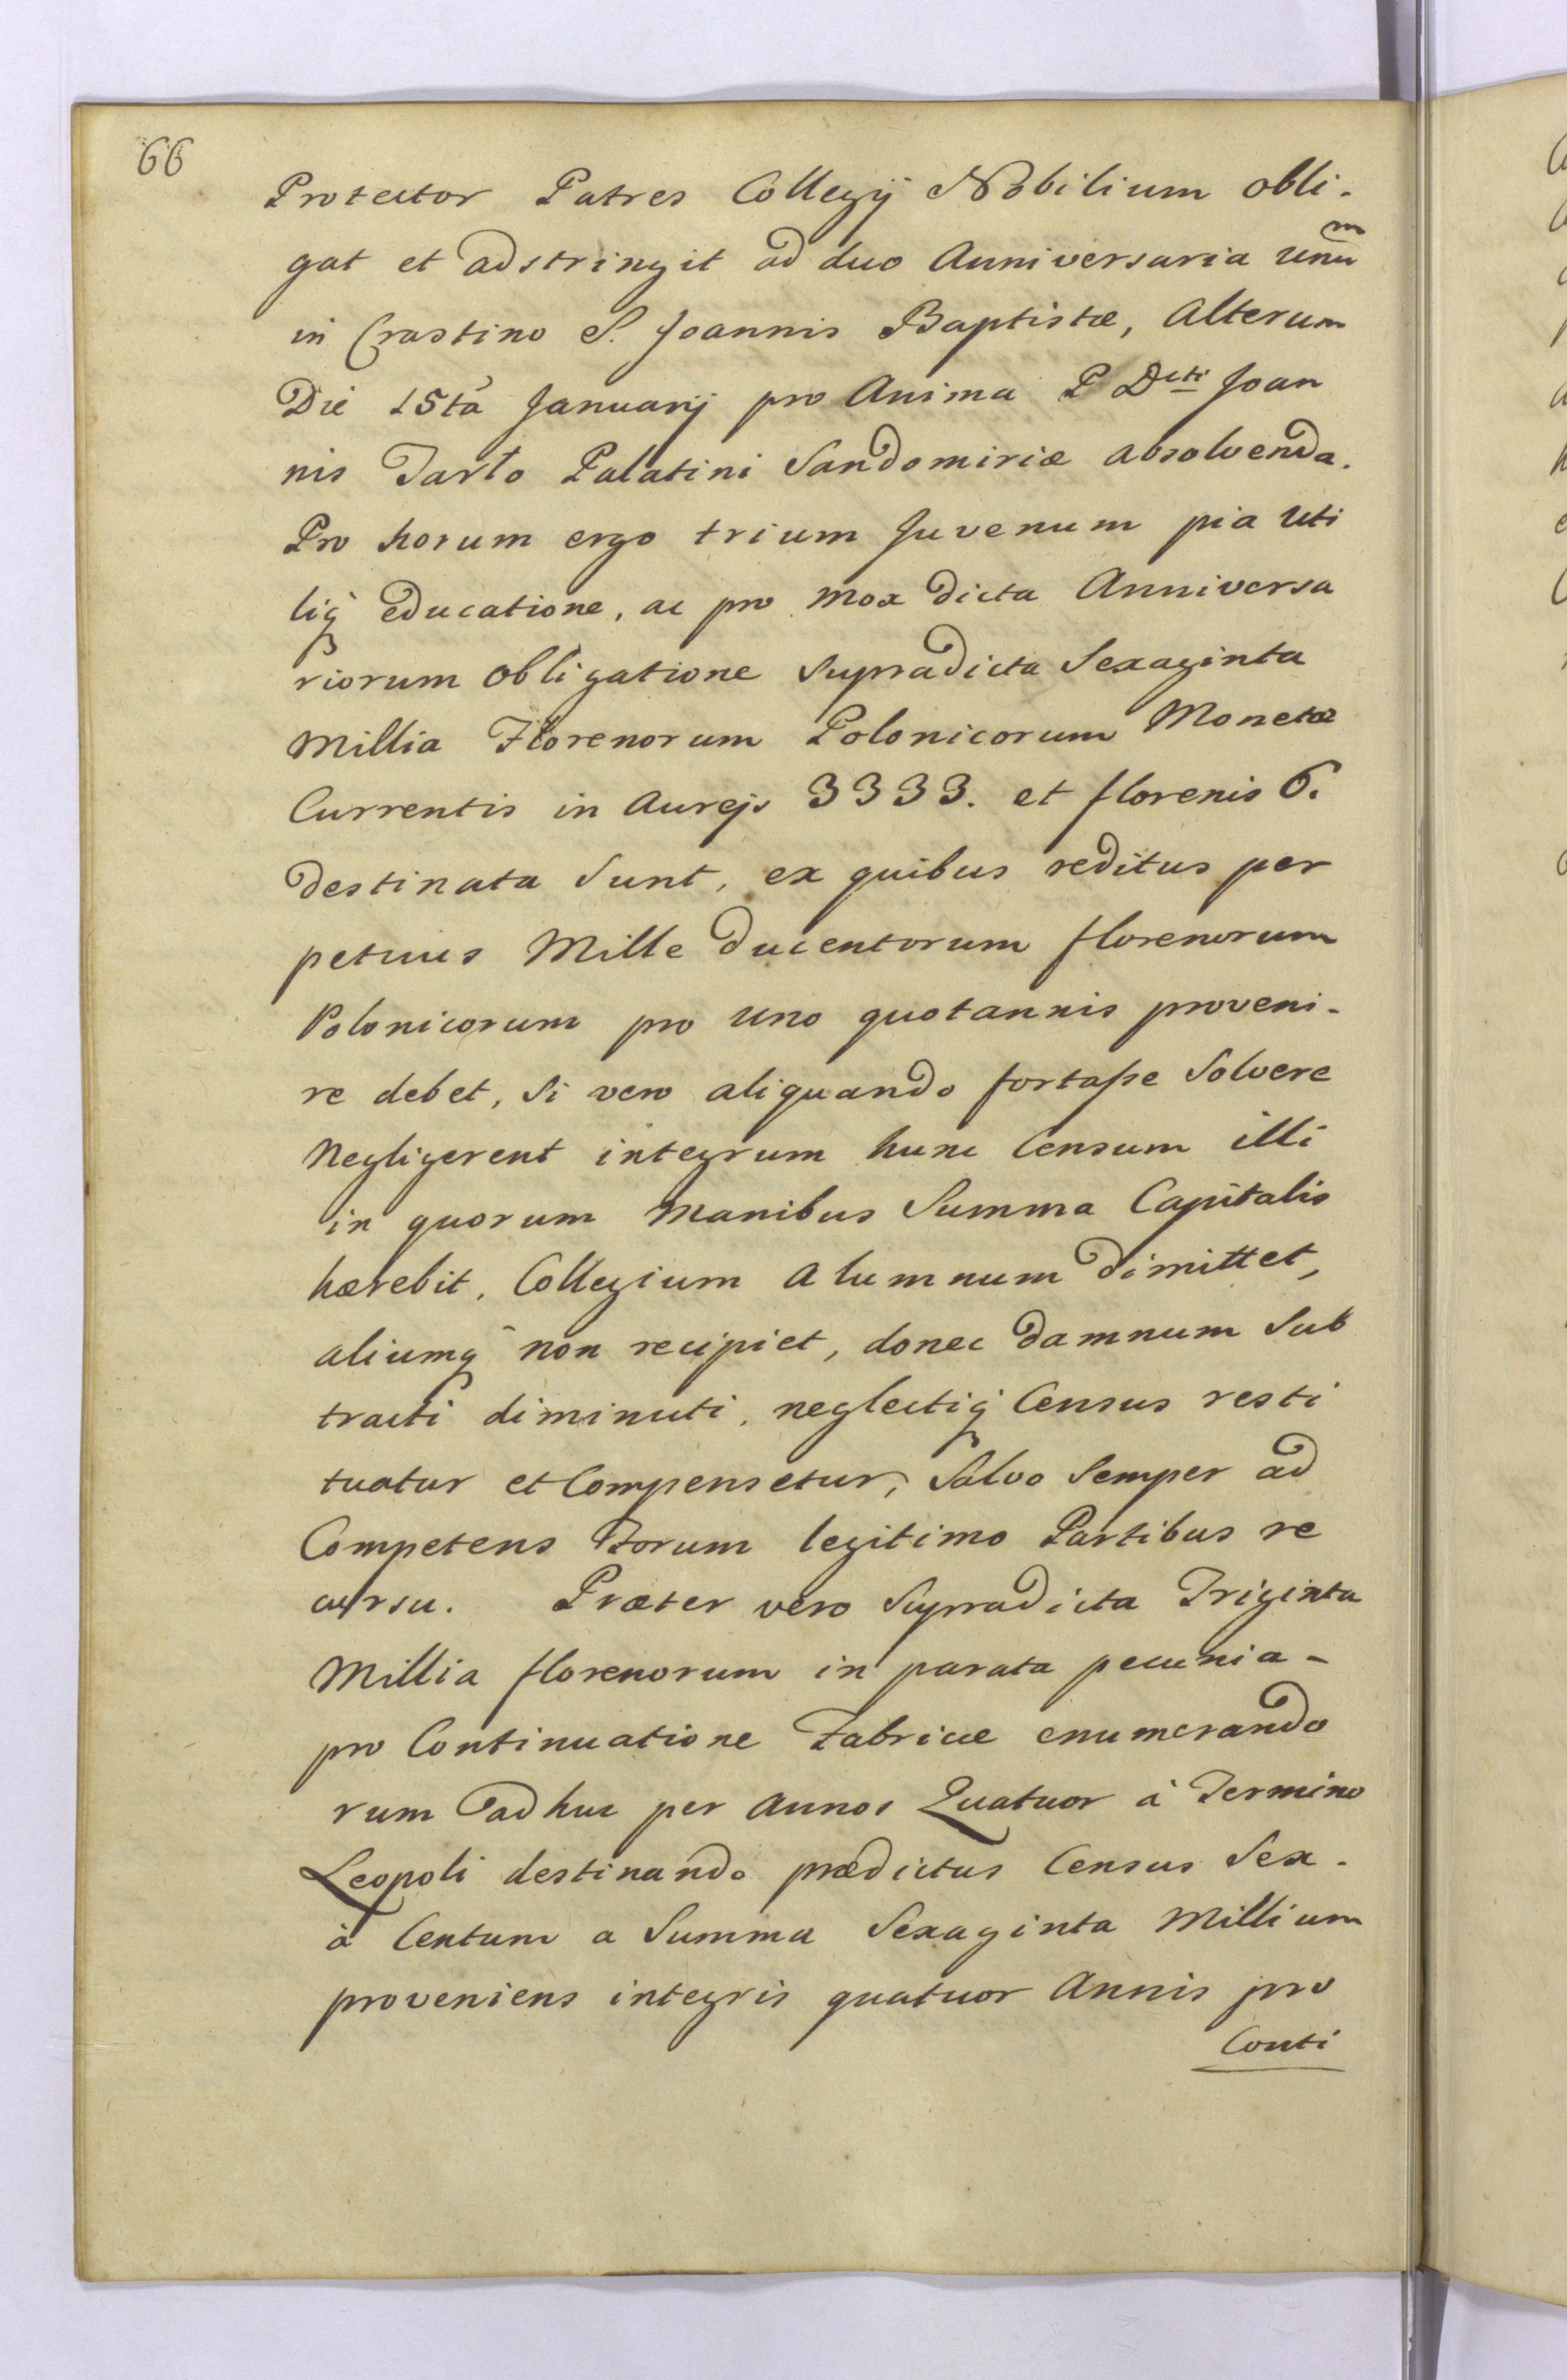 66
Protector Patres Collegij Nobilium obli-
gat et adstringit ad duo Anniversaria Unum
in Crastino S. Joannis Baptistæ, Alterum
Die 15tâ Januarij pro Anima P Dcti Joan
nis Tarło Palatini Sandomiriæ absolvenda.
Pro horum ergo trium Juvenum pia Uti
liq educatione, ac pro mox dicta Anniversa
riorum obligatione Supradicta Sexaginta
Millia Florenorum Polonicorum Monetæ
Currentis in Aurejs 3333. et florenis 6.
destinata Sunt, ex quibus reditus per
petuus Mille ducentorum florenorum
Polonicorum pro uno quotannis proveni-
re debet, Si vero aliquando fortaße Solvere
Negligerent integrum hunc Censum illi
in quorum Manibus Summa Capitalis
hærebit, Collegium Alumnum dimittet,
aliumq non recipiet, donec damnum Sub
tracti diminuti, neglectiq Census resti
tuatur et Compensetur, Salvo Semper ad
Competens Forum legitimo Partibus re
cursu. Præter vero Supradicta Triginta
Millia florenorum in parata pecunia -
pro Continuatione Fabricæ enumerando
rum adhuc per Annos Quatuor à Termino
Leopoli destinando prædictus Census Sex -
à Centum a Summa Sexaginta Millium
proveniens integris quatuor Annis pro
Conti